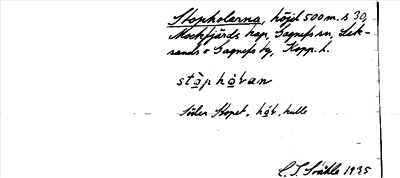 Stopholarna, höjd 500 m. s 30,
Mockfjärds kap, Gagnefs sn, Lek-
sands o Gagnefs tg, Kopp. l.
stòp hò̱van
Söder Stopet, hó̱v, kulle
1935